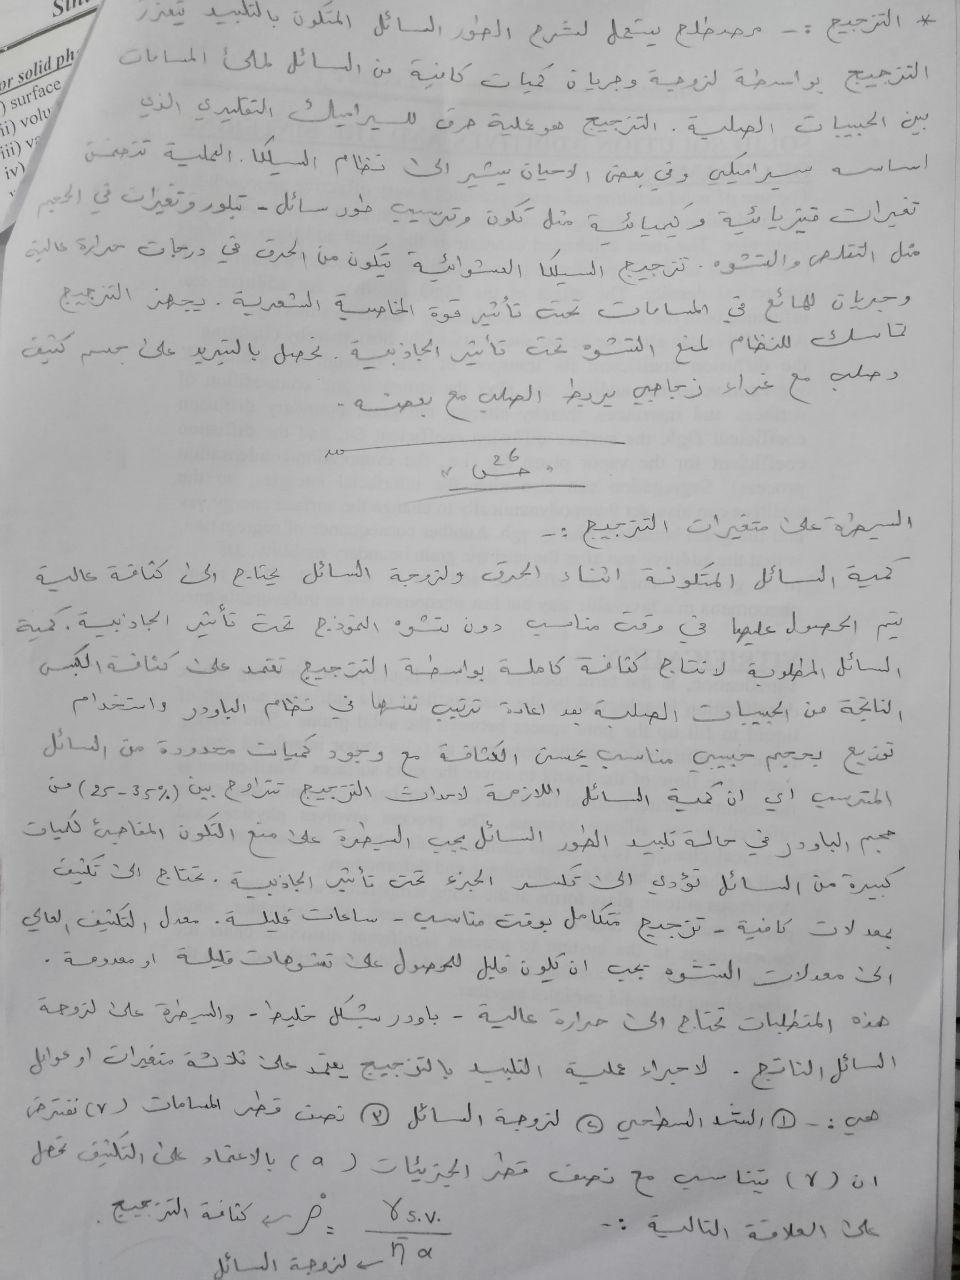 Sin
or solid ph
) surface
ii) volu
iii) va
iv)
* التزجيج :- مصطلح يستعمل لشرح الطور السائل المتكون بالتلبيد يتعزز
التزجيج بواسطة لزوجية وجريان كميات كافية من السائل لملئ المسامات
بين الحبيبات الصلبة . التزجيج هو عملية حرق للسيراميك التقليدي الذي
اساسه سيراميكي وفي بعض الاحيان يشير الى نظام السيلكا . العملية تتضمن
تغيرات فيزيائية وكيميائية مثل تكون وترسيب طور سائل - تبلور وتغيرات في الحجم
مثل التقلص والتشوه . تزجيج السيلكا العشوائية يتكون من الحرق في درجات حرارة عالية
وجريان المائع في المسامات تحت تأثير قوة الخاصية الشعرية . يجهز التزجيج
تماسك للنظام لمنع التشوه تحت تأثير الجاذبية . نحصل بالتبريد على جسم كثيف
وصلب مع غراء زجاجي يربط الصلب مع بعضه .
26
السيطرة على متغيرات التزجيج :-
كمية السائل المتكونة اثناء الحرق ولزوجة السائل يحتاج الى كثافة عالية
يتم الحصول عليها في وقت مناسب دون تشوه النموذج تحت تأثير الجاذبية . كمية
السائل المطلوبة لانتاج كثافة كاملة بواسطة التزجيج تعتمد على كثافة الكبس
الناتجة من الحبيبات الصلبة بعد اعادة ترتيب نفسها في نظام الباودر واستخدام
توزيع بحجم حبيبي مناسب يحسن الكثافة مع وجود كميات محدودة من السائل
المترسب أي ان كمية السائل اللازمة لاحداث التزجيج تتراوح بين (25-35%) من
حجم الباودر في حالة تلبيد الطور السائل يجب السيطرة على منع التكون المفاجئ لكميات
كبيرة من السائل تؤدي الى تكسر الجزء تحت تأثير الجاذبية . نحتاج الى تكثيف
بمعدلات كافية - تزجيج متكامل بوقت مناسب - ساعات قليلة . معدل التكثيف العالي
الى معدلات التشوه يجب ان تكون قليل للحصول على تشوهات قليلة او معدومة .
هذه المتطلبات تحتاج الى حرارة عالية - باودر بشكل خليط - والسيطرة على لزوجة
السائل الناتج . لاجراء عملية التلبيد بالتزجيج يعتمد على ثلاثة متغيرات او عوامل
هي :- ① الشد السطحي ② لزوجة السائل ③ نصف قطر المسامات (r) نفترض
ان (r) يتناسب مع نصف قطر الجزيئات (a) بالاعتماد على التكثيف نحصل
على العلاقة التالية :- γs.v. / η a = ρ° ← كثافة التزجيج .
← لزوجة السائل